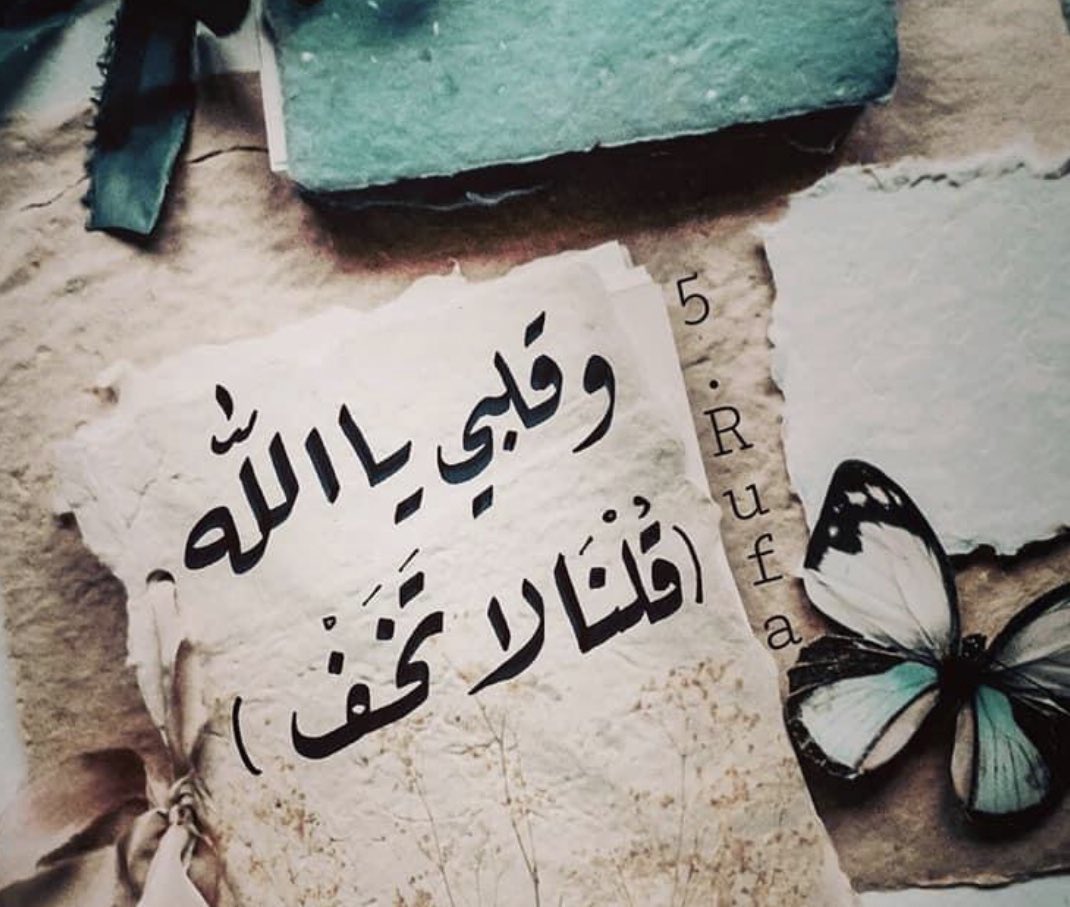 وقلبي يا الله
(قُلْنَا لا تَخَفْ)
5.Rufa